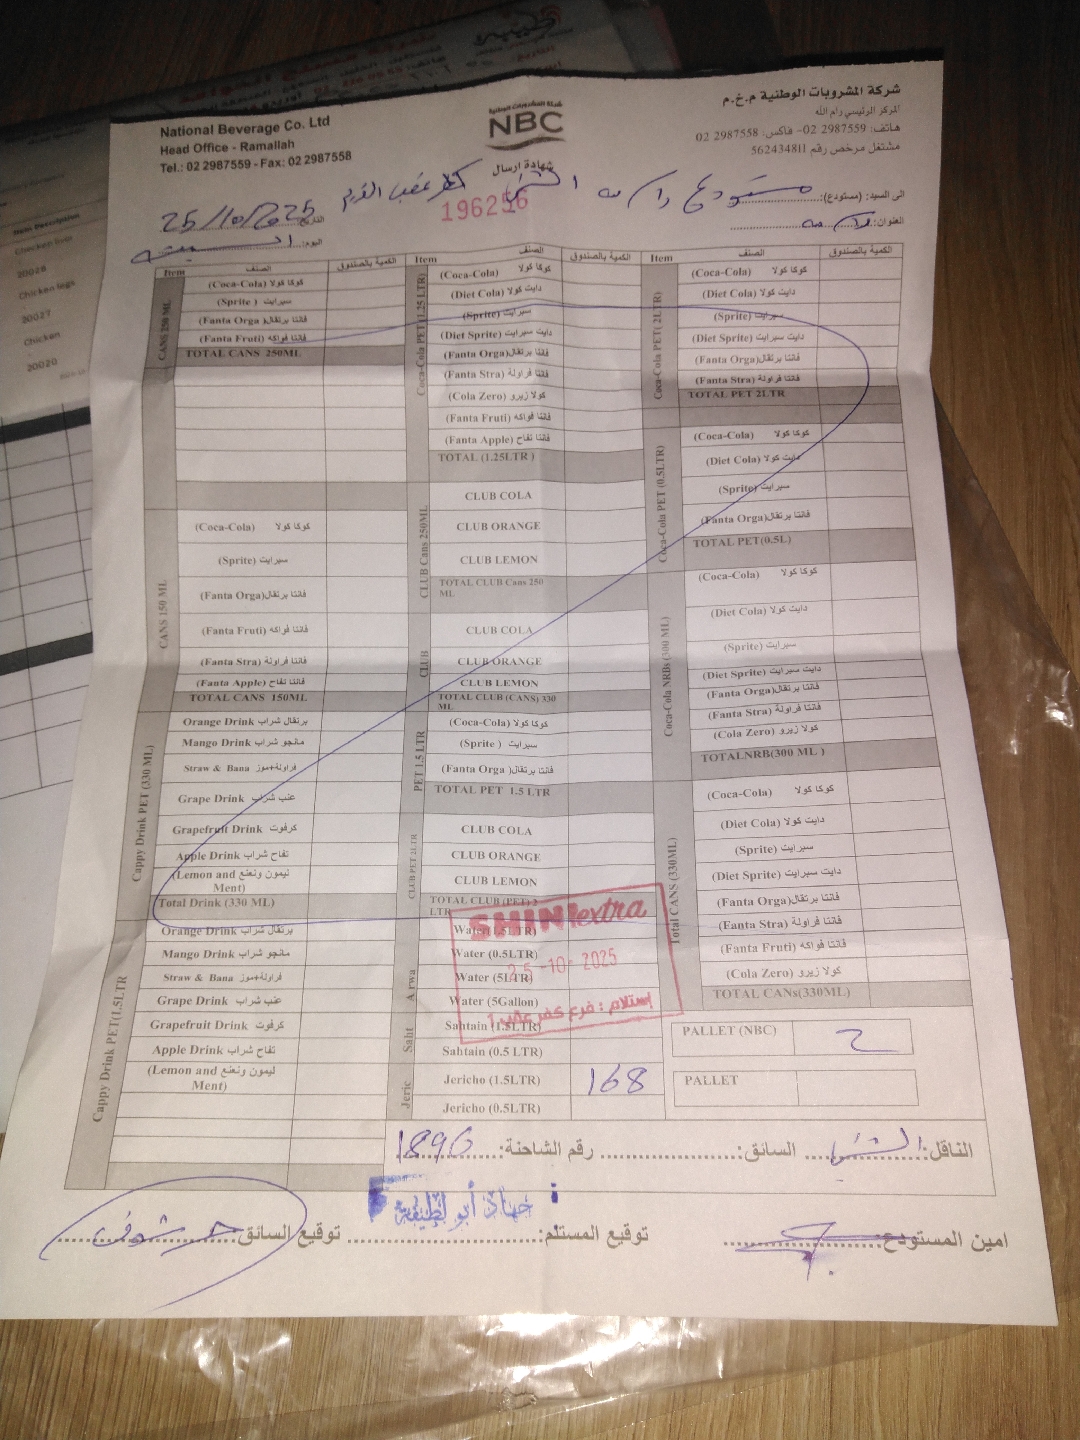 National Beverage Co. Ltd
Head Office - Ramallah
Tel.: 02 2987559 - Fax: 02 2987558
شركة المشروبات الوطنية
NBC
شركة المشروبات الوطنية م.خ.م
المركز الرئيسي رام الله
هاتف: 2987559 02- فاكس: 2987558 02
مشتغل مرخص رقم 562434811
شهادة ارسال
196256
الى السيد: (مستودع): مستودع رام الله
كفر عقب القديم
العنوان: رام الله
التاريخ 25/10/2025
اليوم: السبت
Item الصنف الكمية بالصندوق
CANS 250 ML
(Coca-Cola) كوكا كولا
(Sprite ) سبرايت
(Fanta Orga) فانتا برتقال
(Fanta Fruti) فانتا فواكه
TOTAL CANS 250ML
CANS 150 ML
(Coca-Cola) كوكا كولا
(Sprite) سبرايت
(Fanta Orga) فانتا برتقال
(Fanta Fruti) فانتا فواكه
(Fanta Stra) فانتا فراولة
(Fanta Apple) فانتا تفاح
TOTAL CANS 150ML
Cappy Drink PET (330 ML)
Orange Drink برتقال شراب
Mango Drink مانجو شراب
Straw & Bana فراولة+موز
Grape Drink عنب شراب
Grapefruit Drink كرفوت
Apple Drink تفاح شراب
(Lemon and ليمون ونعنع
Ment)
Total Drink (330 ML)
Cappy Drink PET(1.5LTR
Orange Drink برتقال شراب
Mango Drink مانجو شراب
Straw & Bana فراولة+موز
Grape Drink عنب شراب
Grapefruit Drink كرفوت
Apple Drink تفاح شراب
(Lemon and ليمون ونعنع
Ment)
Item الصنف الكمية بالصندوق
Coca-Cola PET (1.25 LTR)
(Coca-Cola) كوكا كولا
(Diet Cola) دايت كولا
(Sprite) سبرايت
(Diet Sprite) دايت سبرايت
(Fanta Orga) فانتا برتقال
(Fanta Stra) فانتا فراولة
(Cola Zero) كولا زيرو
(Fanta Fruti) فانتا فواكه
(Fanta Apple) فانتا تفاح
TOTAL (1.25LTR )
CLUB Cans 250ML
CLUB COLA
CLUB ORANGE
CLUB LEMON
TOTAL CLUB Cans 250
ML
CLUB
CLUB COLA
CLUB ORANGE
CLUB LEMON
TOTAL CLUB (CANS) 330
ML
PET 1.5 LTR
(Coca-Cola) كوكا كولا
(Sprite ) سبرايت
(Fanta Orga) فانتا برتقال
TOTAL PET 1.5 LTR
CLUB PET 2LTR
CLUB COLA
CLUB ORANGE
CLUB LEMON
TOTAL CLUB (PET) 2
LTR
Arwa
Water (1.5LTR)
Water (0.5LTR)
Water (5LTR)
Water (5Gallon)
Saht
Sahtain (1.5LTR)
Sahtain (0.5 LTR)
Jeric
Jericho (1.5LTR) 168
Jericho (0.5LTR)
SHINI extra
25-10-2025
استلام : فرع كفر عقب 1
Item الصنف الكمية بالصندوق
Coca-Cola PET( 2LTR)
(Coca-Cola) كوكا كولا
(Diet Cola) دايت كولا
(Sprite) سبرايت
(Diet Sprite) دايت سبرايت
(Fanta Orga) فانتا برتقال
(Fanta Stra) فانتا فراولة
TOTAL PET 2LTR
Coca-Cola PET (0.5LTR)
(Coca-Cola) كوكا كولا
(Diet Cola) دايت كولا
(Sprite) سبرايت
(Fanta Orga) فانتا برتقال
TOTAL PET(0.5L)
Coca-Cola NRBs (300 ML)
(Coca-Cola) كوكا كولا
(Diet Cola) دايت كولا
(Sprite) سبرايت
(Diet Sprite) دايت سبرايت
(Fanta Orga) فانتا برتقال
(Fanta Stra) فانتا فراولة
(Cola Zero) كولا زيرو
TOTALNRB(300 ML )
Total CANS (330ML)
(Coca-Cola) كوكا كولا
(Diet Cola) دايت كولا
(Sprite) سبرايت
(Diet Sprite) دايت سبرايت
(Fanta Orga) فانتا برتقال
(Fanta Stra) فانتا فراولة
(Fanta Fruti) فانتا فواكه
(Cola Zero) كولا زيرو
TOTAL CANs(330ML)
PALLET (NBC) 2
PALLET
الناقل: السائق: رقم الشاحنة: 1896
امين المستودع: توقيع المستلم: توقيع السائق:
جهاد أبو لطيفة
Item Description
Chicken liver
20028
Chicken legs
20027
Chicken
20020